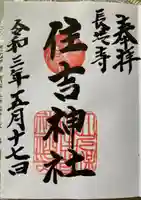 奉拝
長岳寺
住吉神社
令和三年五月十七日